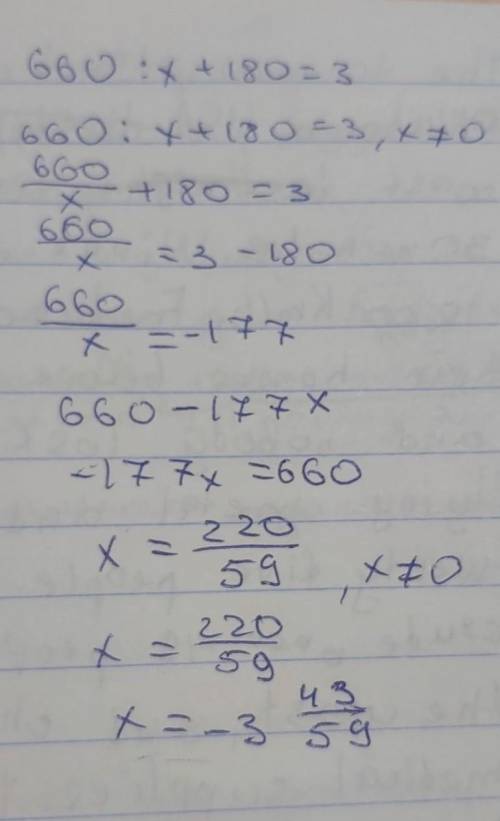 660 : x + 180 = 3
660 : x + 180 = 3, x ≠ 0
660/x + 180 = 3
660/x = 3 - 180
660/x = -177
660 - 177x
-177x = 660
x = 220/59, x ≠ 0
x = 220/59
x = -3 43/59